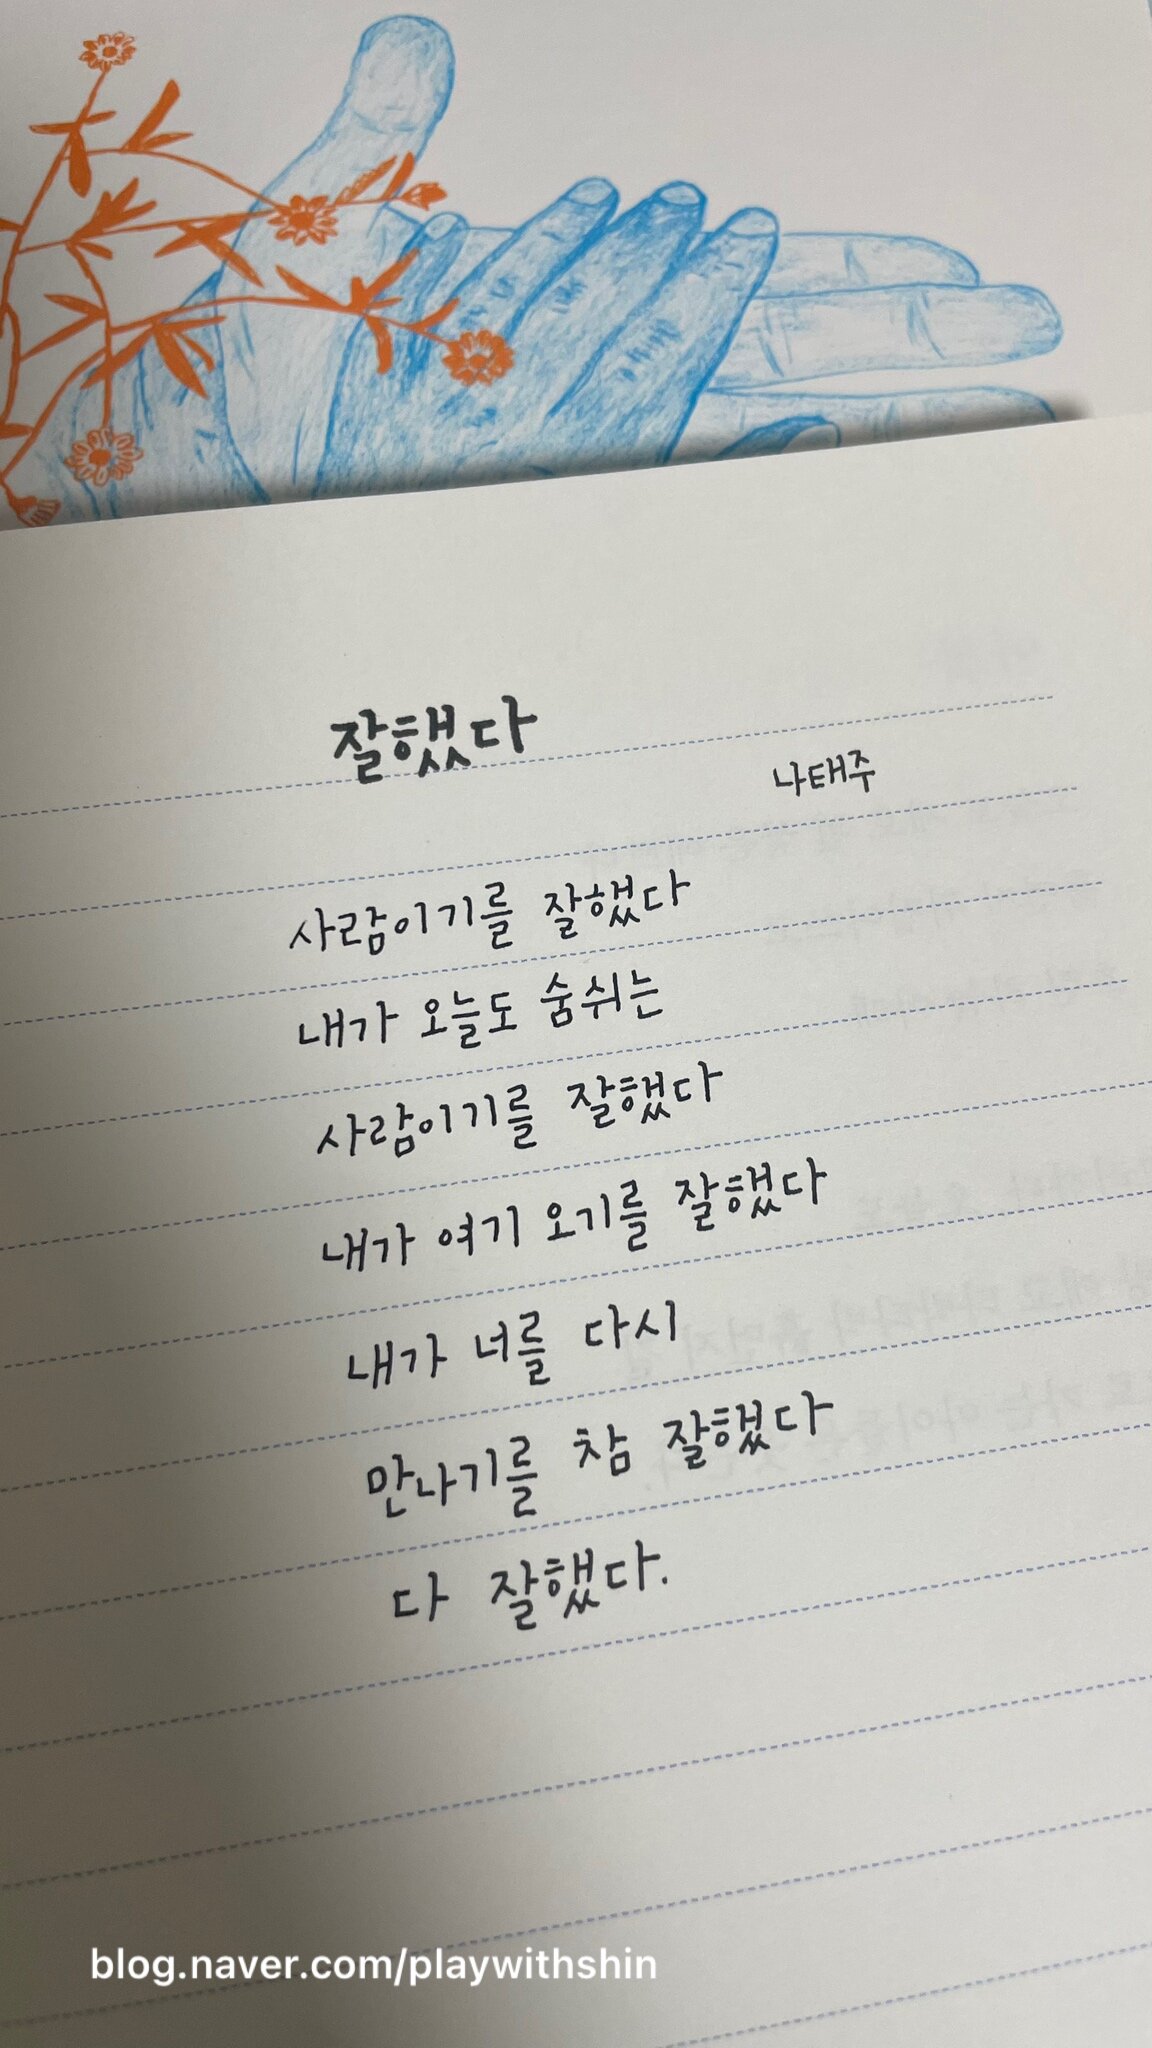 잘했다
나태주
사람이기를 잘했다
내가 오늘도 숨쉬는
사람이기를 잘했다
내가 여기 오기를 잘했다
내가 너를 다시
만나기를 참 잘했다
다 잘했다.
blog.naver.com/playwithshin